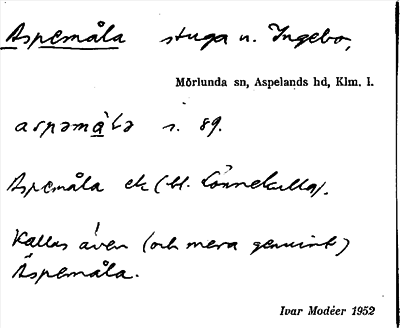 Aspemåla stuga u. Ingebo,
Mörlunda sn, Aspelands hd, Klm. l.
aspəmå̀la s. 89.
Aspemåla ek (bl. Lönnekulla).
Kallas även (och mera genuint)
Äspemåla.
Ivar Modéer 1952